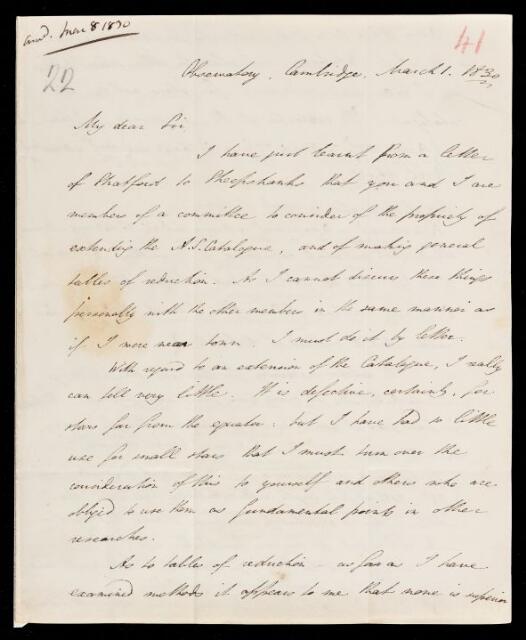 ansd. Mar 8 1830
41
22
Observatory, Cambridge, March 1. 1830
My dear Sir
I have just learnt from a letter
of Stratford to Sheepshanks that you and I are
members of a committee to consider of the propriety of
extending the A.S. Catalogue, and of making general
tables of reduction. As I cannot discuss these things
personally with the other members in the same manner as
if I were near town, I must do it by letter.
With regard to an extension of the Catalogue, I really
can tell very little. It is defective, certainly, for
stars far from the equator: but I have had so little
use for small stars that I must turn over the
consideration of this to yourself and others who are
obliged to use them as fundamental points in other
researches.
As to tables of reduction – as far as I have
examined methods it appears to me that none is superior